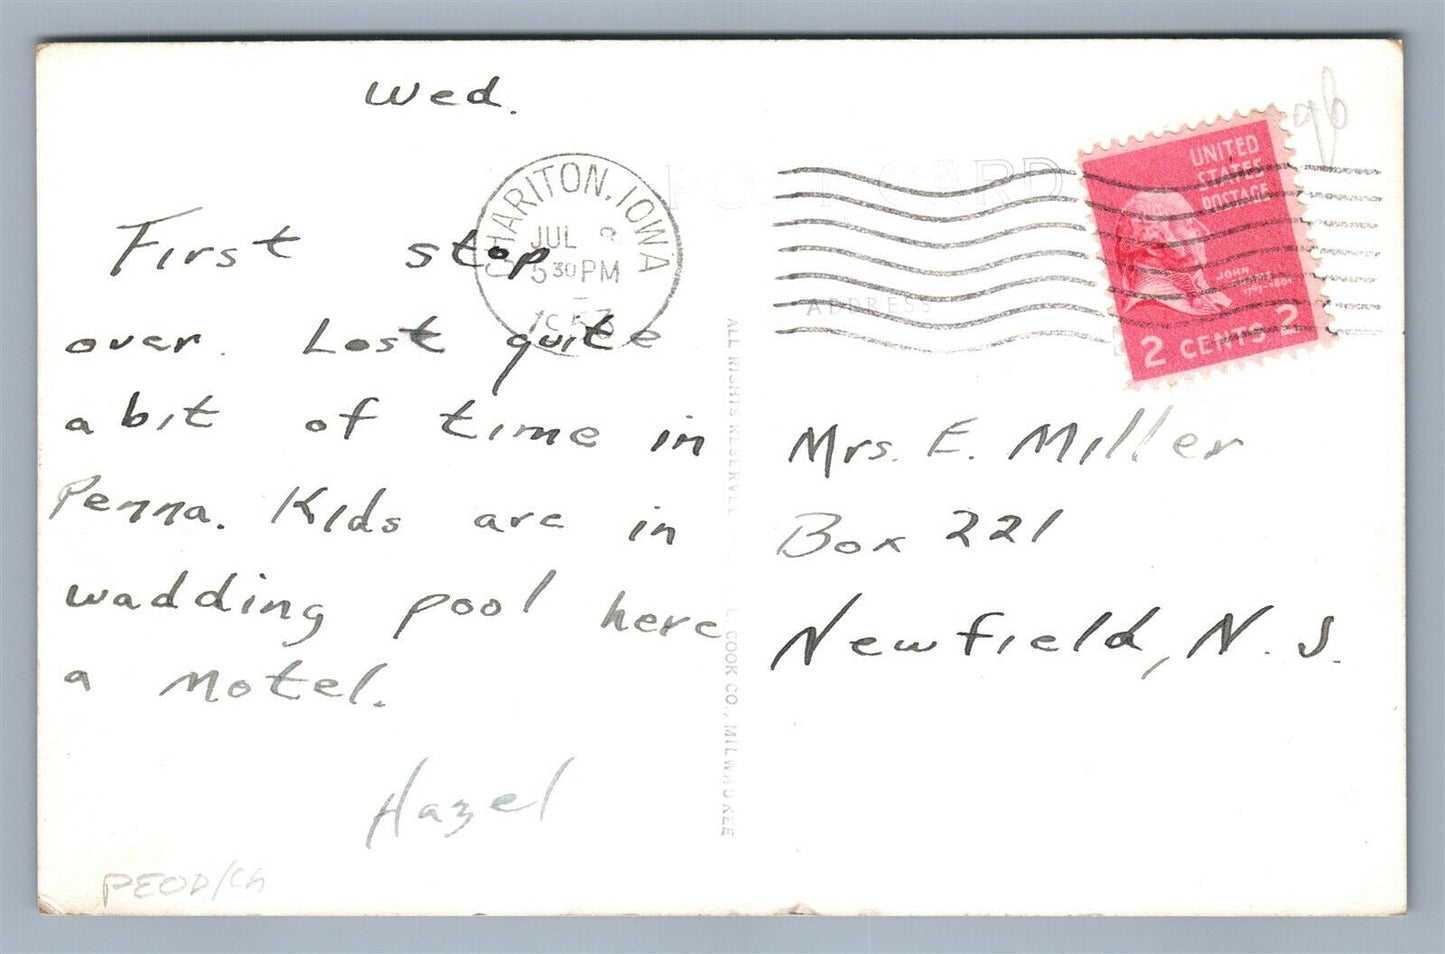 Wed.
First stop
over. Lost quite
a bit of time in
Penna. Kids are in
wadding pool here
a motel.
Hazel
CHARITON, IOWA
JUL
5 30 PM
POST CARD
ADDRESS
UNITED
STATES
POSTAGE
JOHN
2 CENTS 2
Mrs. E. Miller
Box 221
Newfield, N. J.
ALL RIGHTS RESERVED
L. L. COOK CO., MILWAUKEE